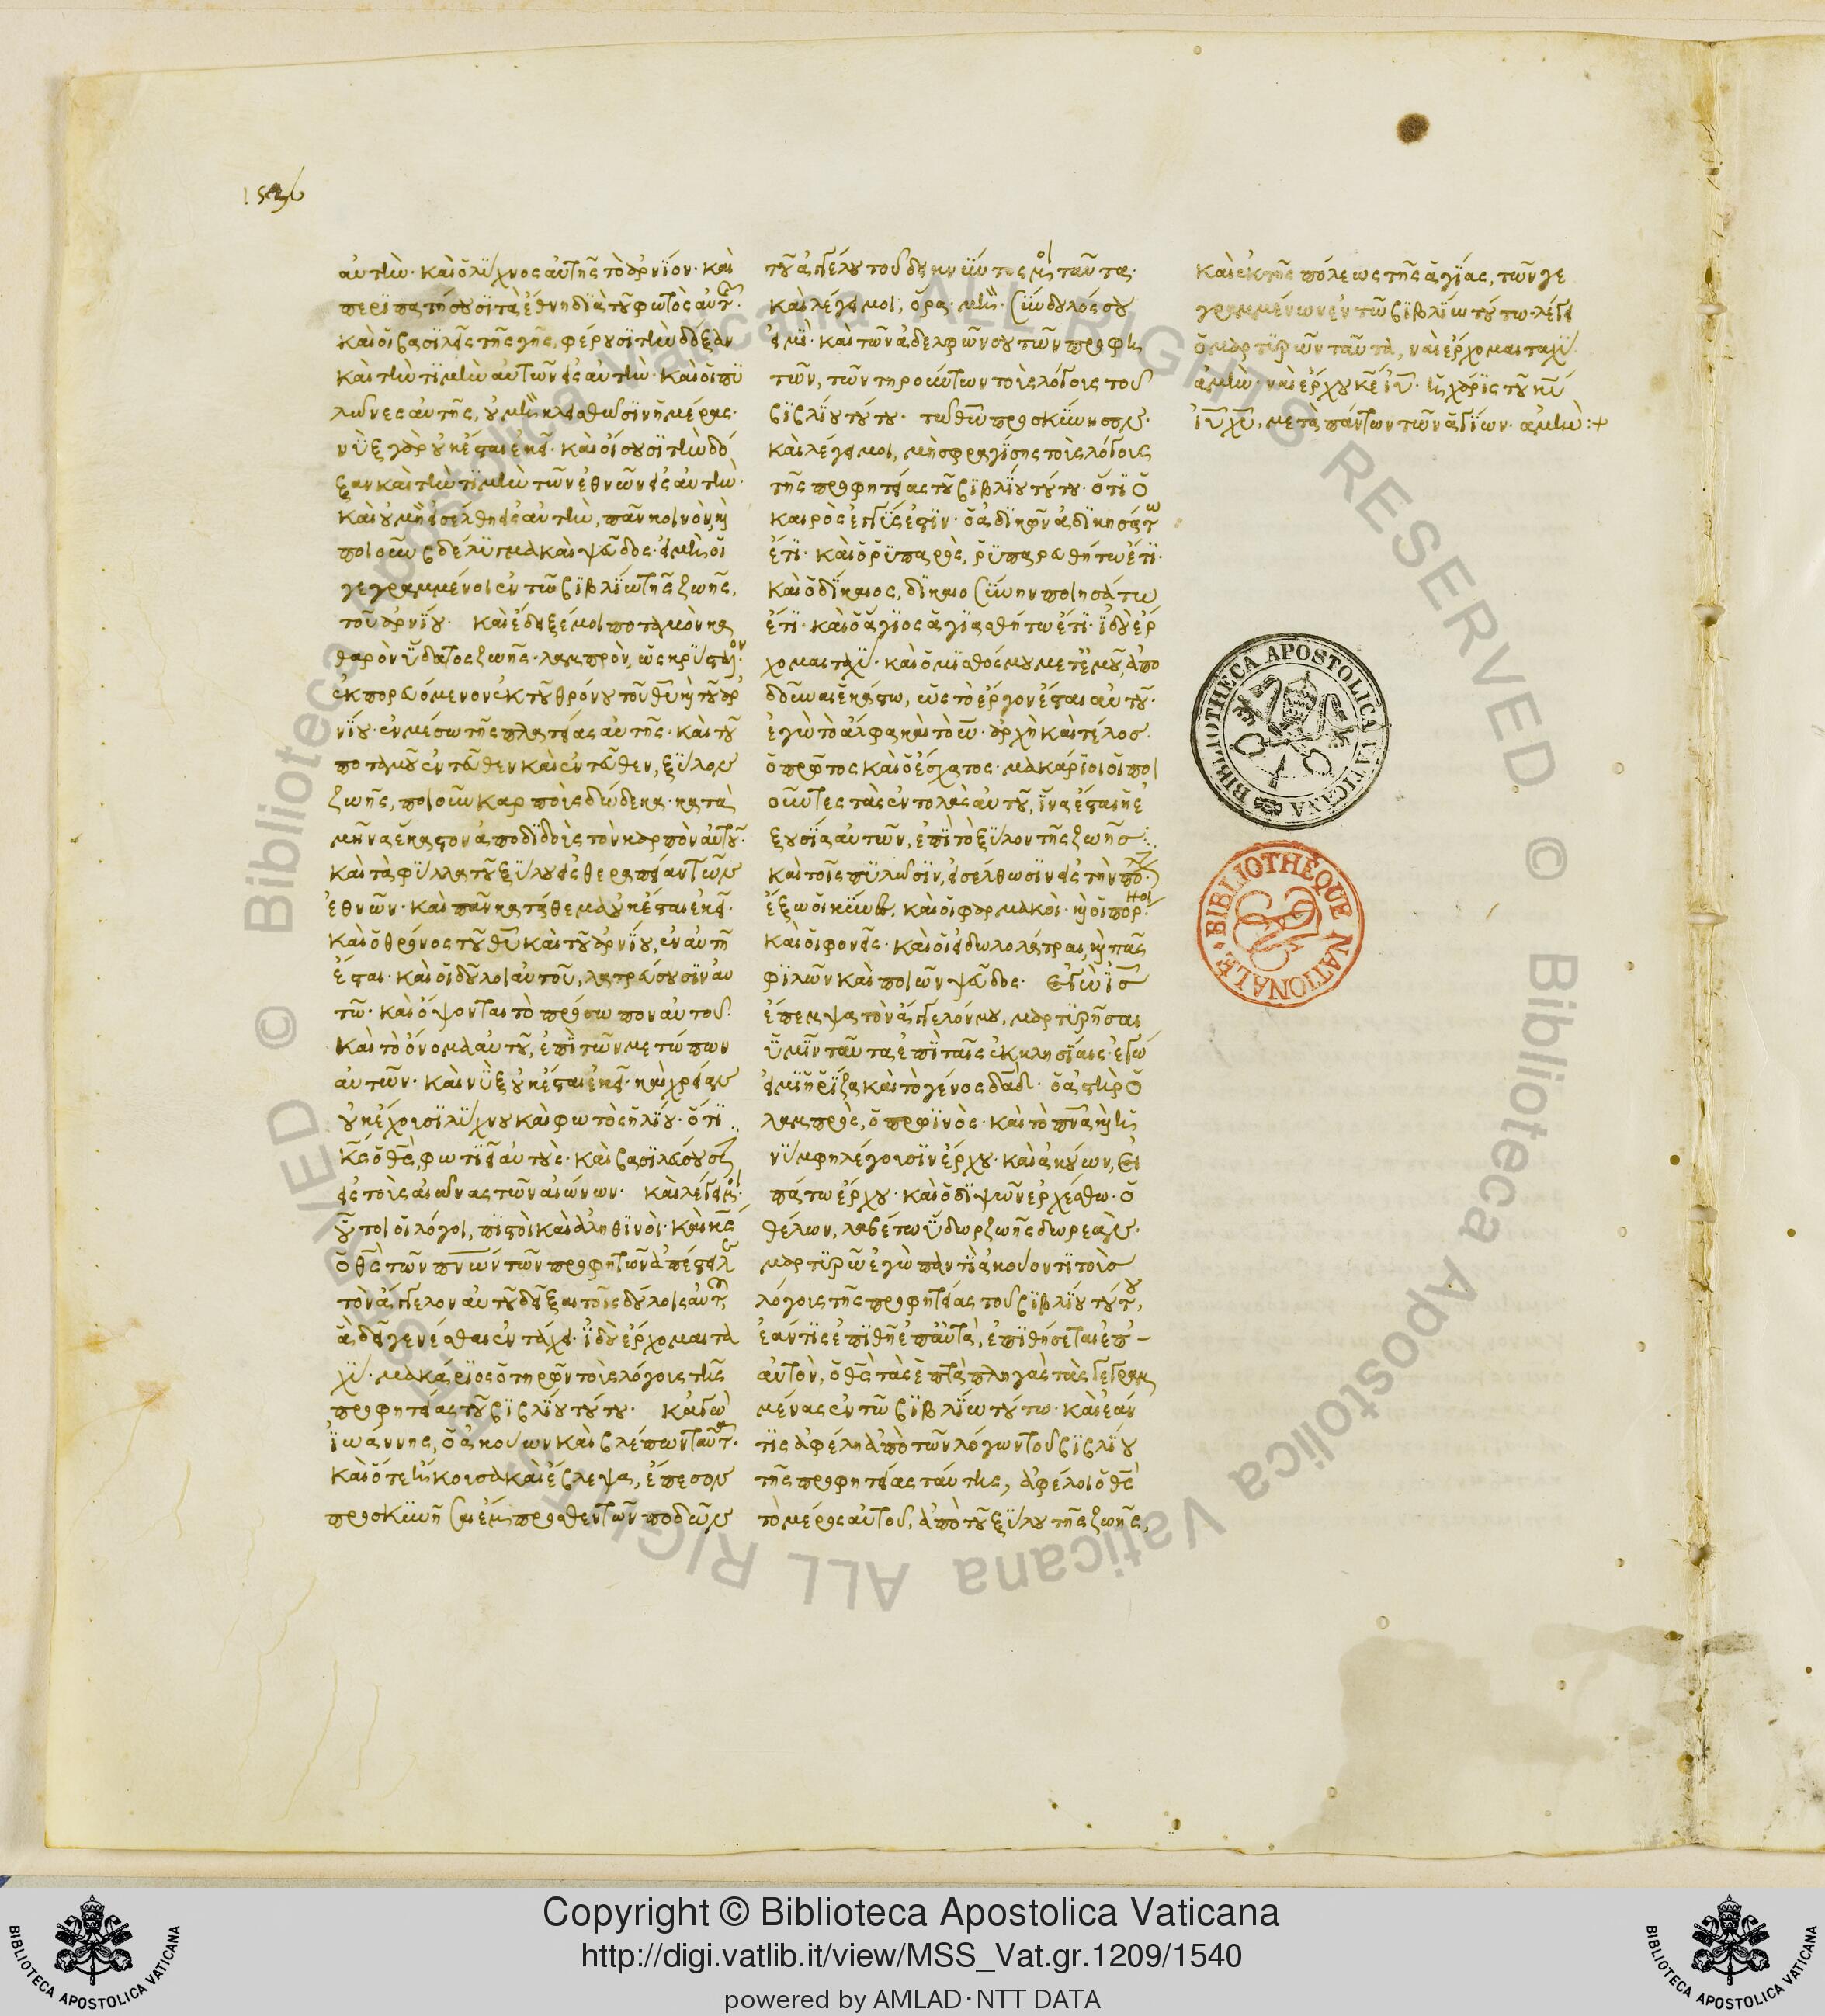 αὐτήν· καὶ ὁ λύχνος αὐτῆς τὸ ἀρνίον· καὶ
περιπατήσουσι τὰ ἔθνη διὰ τοῦ φωτὸς αὐτῆς·
καὶ οἱ βασιλεῖς τῆς γῆς, φέρουσι τὴν δόξαν
καὶ τὴν τιμὴν αὐτῶν εἰς αὐτήν· καὶ οἱ πυ
λῶνες αὐτῆς, οὐ μὴ κλεισθῶσιν ἡμέρας·
νὺξ γὰρ οὐκ ἔσται ἐκεῖ· καὶ οἴσουσι τὴν δό
ξαν καὶ τὴν τιμὴν τῶν ἐθνῶν εἰς αὐτήν·
καὶ οὐ μὴ εἰσέλθη εἰς αὐτὴν, πᾶν κοινὸν, καὶ
ποιοῦν βδέλυγμα καὶ ψεῦδος· εἰ μὴ οἱ
γεγραμμένοι ἐν τῶ βιβλίω τῆς ζωῆς,
τοῦ ἀρνίου· καὶ ἔδειξέ μοι ποταμὸν κα
θαρὸν ὕδατος ζωῆς· λαμπρὸν, ὡς κρύσταλλον·
ἐκπορευόμενον ἐκ τοῦ θρόνου τοῦ θυ καὶ τοῦ ἀρ
νίου· ἐν μέσω τῆς πλατείας αὐτῆς· καὶ τοῦ
ποταμοῦ ἐντεῦθεν καὶ ἐντεῦθεν, ξύλον
ζωῆς, ποιοῦν καρποὺς δώδεκα· κατὰ
μῆνα ἕκαστον ἀποδιδοὺς τὸν καρπὸν αὐτοῦ·
καὶ τὰ φύλλα τοῦ ξύλου εἰς θεραπείαν τῶν
ἐθνῶν· καὶ πᾶν κατάθεμα οὐκ ἔσται ἐκεῖ·
καὶ ὁ θρόνος τοῦ θυ καὶ τοῦ ἀρνίου, ἐν αὐτῆ
ἔσται· καὶ οἱ δοῦλοι αὐτοῦ, λατρεύσουσιν αὐ
τῶ· καὶ ὄψονται τὸ πρόσωπον αὐτοῦ·
καὶ τὸ ὄνομα αὐτοῦ, ἐπὶ τῶν μετώπων
αὐτῶν· καὶ νὺξ οὐκ ἔσται ἐκεῖ· καὶ χρείαν
οὐκ ἔχουσι λύχνου καὶ φωτὸς ἡλίου· ὅτι
κς ὁ θς, φωτιεῖ αὐτούς· καὶ βασιλεύουσιν
εἰς τοὺς αἰῶνας τῶν αἰώνων· καὶ λέγει μοι·
οὗτοι οἱ λόγοι, πιστοὶ καὶ ἀληθινοί· καὶ κς
ὁ θς τῶν πνων τῶν προφητῶν ἀπέστειλε
τὸν ἄγγελον αὐτοῦ δεῖξαι τοῖς δούλοις αὐτοῦ
ἃ δεῖ γενέσθαι ἐν τάχει· ἰδοὺ ἔρχομαι τα
χύ· μακάριος ὁ τηρῶν τοὺς λόγους τῆς
προφητείας τοῦ βιβλίου τούτου· κἀγὼ
ἰωάννης, ὁ ἀκούων καὶ βλέπων ταῦτα·
καὶ ὅτε ἤκουσα καὶ ἔβλεψα, ἔπεσον
προσκυνῆσαι ἔμπροσθεν τῶν ποδῶν
τοῦ ἀγγέλου τοῦ δεικνύντος μοι ταῦτα·
καὶ λέγει μοι, ὅρα μή· σύνδουλός σου
εἰμί· καὶ τῶν ἀδελφῶν σου τῶν προφη
τῶν, τῶν τηρούντων τοὺς λόγους τοῦ
βιβλίου τούτου· τῶ θω προσκύνησον·
καὶ λέγει μοι, μὴ σφραγίσης τοὺς λόγους
τῆς προφητείας τοῦ βιβλίου τούτου· ὅτι ὁ
καιρὸς ἐγγύς ἐστιν· ὁ ἀδικῶν ἀδικησάτω
ἔτι· καὶ ὁ ῥυπαρὸς, ῥυπαρευθήτω ἔτι·
καὶ ὁ δίκαιος, δικαιοσύνην ποιησάτω
ἔτι· καὶ ὁ ἅγιος ἁγιασθήτω ἔτι· ἰδοὺ ἔρ
χομαι ταχύ· καὶ ὁ μισθός μου μετ' ἐμοῦ, ἀπο
δοῦναι ἑκάστω, ὡς τὸ ἔργον ἔσται αὐτοῦ·
ἐγὼ τὸ ἄλφα καὶ τὸ ω· ἀρχὴ καὶ τέλος·
ὁ πρῶτος καὶ ὁ ἔσχατος· μακάριοι οἱ ποι
οῦντες τὰς ἐντολὰς αὐτοῦ, ἵνα ἔσται ἡ ἐ
ξουσία αὐτῶν, ἐπὶ τὸ ξύλον τῆς ζωῆς·
καὶ τοῖς πυλῶσιν, εἰσέλθωσιν εἰς τὴν πόλιν
ἔξω οἱ κύνες, καὶ οἱ φαρμακοί· καὶ οἱ πόρνοι
καὶ οἱ φονεῖς· καὶ οἱ εἰδωλολάτραι, καὶ πᾶς
φιλῶν καὶ ποιῶν ψεῦδος· ἐγὼ ις
ἔπεμψα τὸν ἄγγελόν μου, μαρτυρῆσαι
ὑμῖν ταῦτα ἐπὶ ταῖς ἐκκλησίαις· ἐγώ
εἰμι ἡ ῥίζα καὶ τὸ γένος δαδ· ὁ ἀστὴρ ὁ
λαμπρὸς, ὁ πρωϊνός· καὶ τὸ πνα καὶ ἡ
νύμφη λέγουσιν ἔρχου· καὶ ὁ ἀκούων, εἰ
πάτω ἔρχου· καὶ ὁ διψῶν ἐρχέσθω· ὁ
θέλων, λαβέτω ὕδωρ ζωῆς δωρεάν·
μαρτυρῶ ἐγὼ παντὶ ἀκούοντι τοὺς
λόγους τῆς προφητείας τοῦ βιβλίου τούτου,
ἐάν τις ἐπιθῆ ἐπ' αὐτὰ, ἐπιθήσεται ἐπ'
αὐτὸν, ὁ θς τὰς ἑπτὰ πληγὰς τὰς γεγραμ
μένας ἐν τῶ βιβλίω τούτω· καὶ ἐάν
τις ἀφέλη ἀπὸ τῶν λόγων τοῦ βιβλίου
τῆς προφητείας ταύτης, ἀφέλοι ὁ θς
τὸ μέρος αὐτοῦ, ἀπὸ τοῦ ξύλου τῆς ζωῆς,
καὶ ἐκ τῆς πόλεως τῆς ἁγίας, τῶν γε
γραμμένων ἐν τῶ βιβλίω τούτω· λέγει
ὁ μαρτυρῶν ταῦτα, ναὶ ἔρχομαι ταχύ·
ἀμήν· ναὶ ἔρχου κε ιυ· ἡ χάρις τοῦ κυ
ιυ χυ, μετὰ πάντων τῶν ἁγίων· ἀμήν:+
BIBLIOTHECA APOSTOLICA VATICANA
BIBLIOTHÈQUE NATIONALE
© Biblioteca Apostolica Vaticana ALL RIGHTS RESERVED
Copyright © Biblioteca Apostolica Vaticana
http://digi.vatlib.it/view/MSS_Vat.gr.1209/1540
powered by AMLAD·NTT DATA
BIBLIOTECA APOSTOLICA VATICANA
BIBLIOTECA APOSTOLICA VATICANA